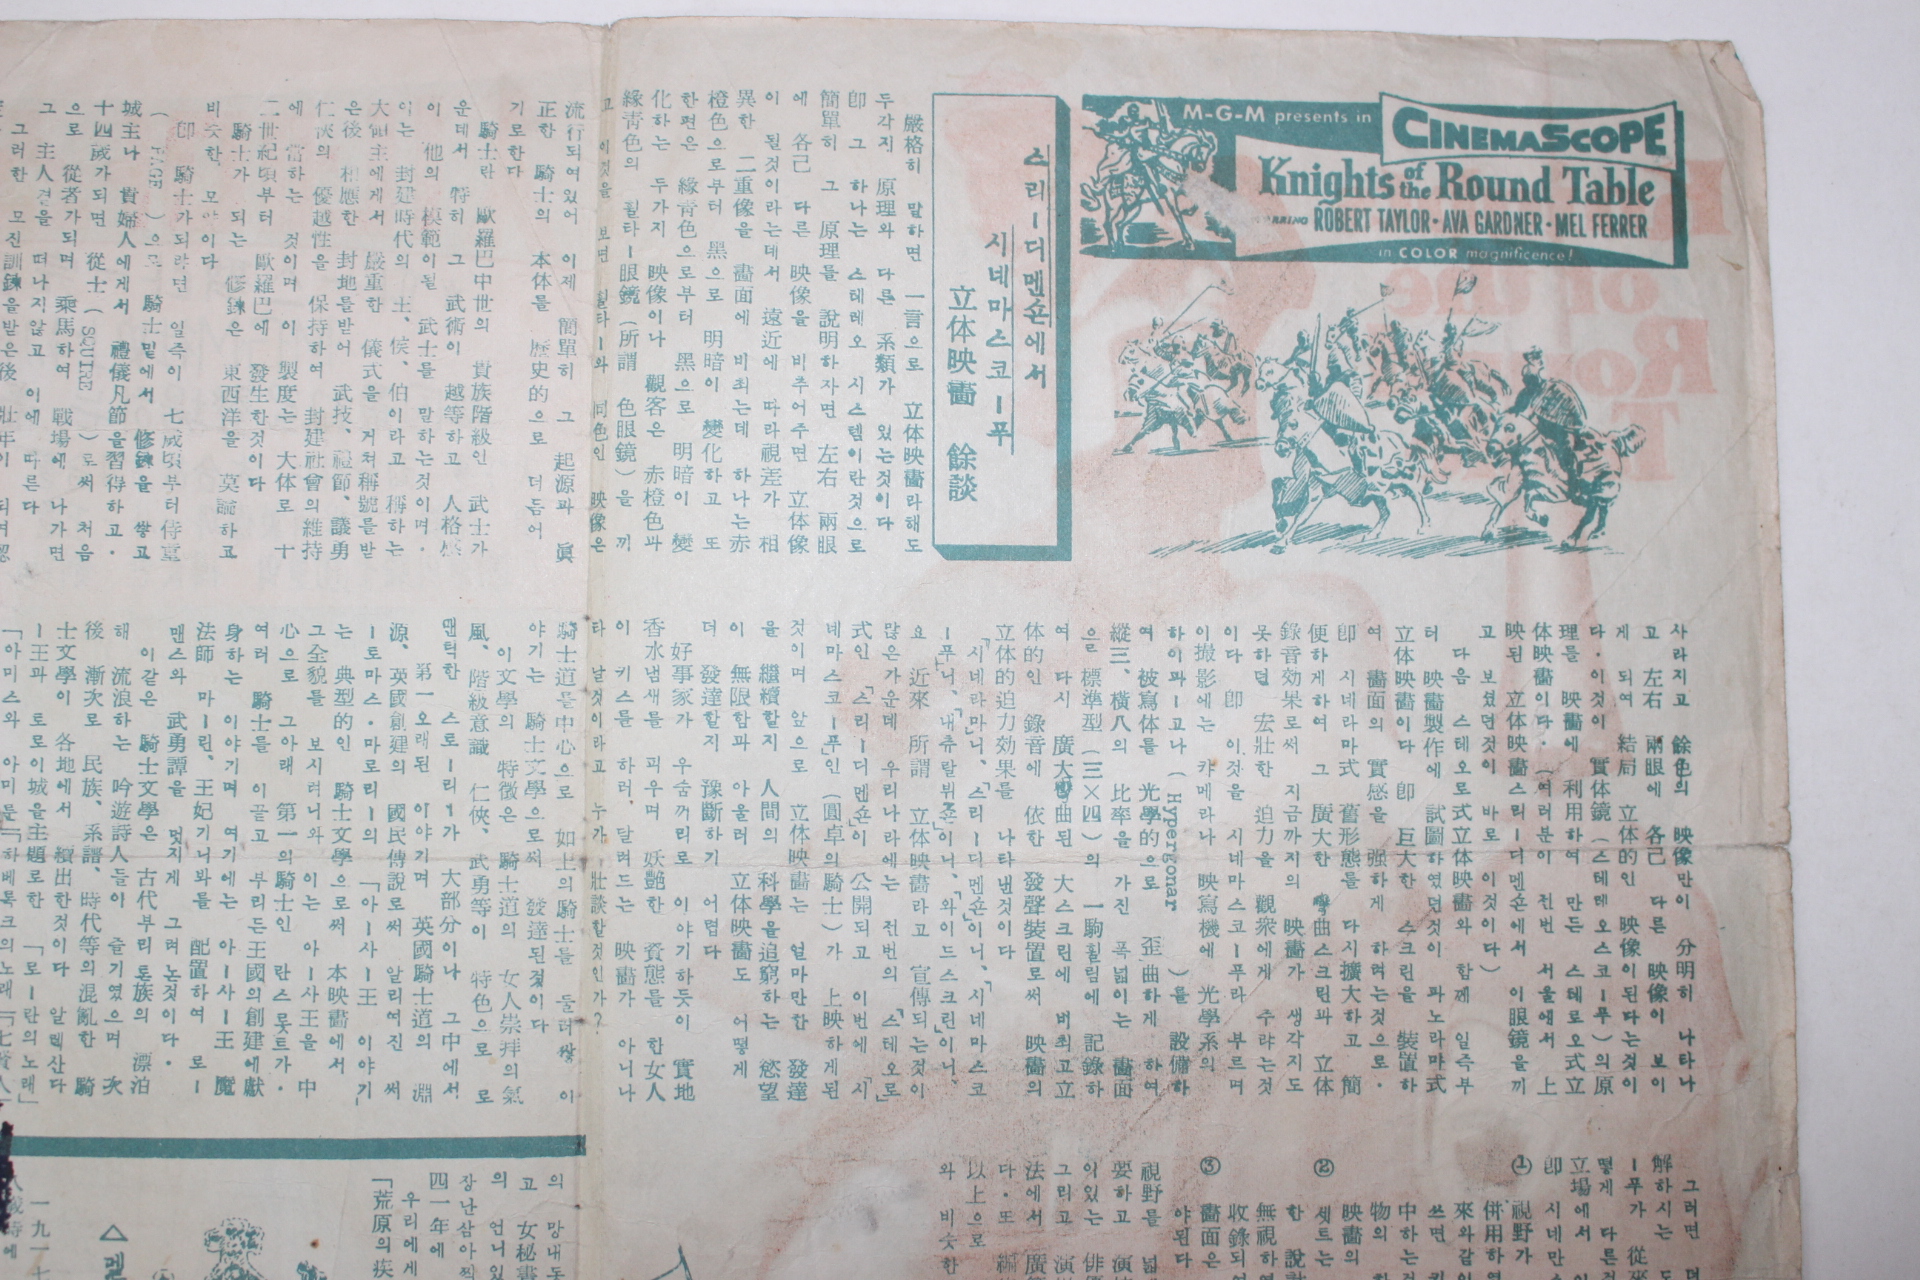 M-G-M presents in
CINEMASCOPE
Knights of the Round Table
ROBERT TAYLOR · AVA GARDNER · MEL FERRER
in COLOR magnificence!
스리ー디멘숀에서
시네마스코ー푸
立体映畵 餘談
嚴格히 말하면 一言으로 立体映畵라해도
두각지 原理와 다른 系類가 있는것이다
卽 그 하나는 스테레오 시스템이란것으로
簡單히 그 原理를 說明하자면 左右 兩眼
에 各己 다른 映像을 비추어주면 立体像
이 될것이라는데서 遠近에 따라視差가 相
異한 二重像을 畵面에 비최는데 하나는赤
橙色으로부터 黑으로 明暗이 變化하고 또
한편은 緣靑色으로부터 黑으로 明暗이 變
化하는 두가지 映像이나 觀客은 赤橙色과
緣靑色의 휠타ー眼鏡(所謂 色眼鏡)을 끼
고 이것을 보면 휠타ー와 同色인 映像은
사라지고 餘色의 映像만이 分明히 나타나
고 左右 兩眼에 各己 다른 映像이 보이
게 되여 結局 立体的인 映像이된다는것이
다·이것이 實体鏡(스테레오스코ー푸)의原
理를 映畵에 利用하여 만든 스테로오式立
体映畵이다·(여러분이 전번 서울에서 上
映된 立体映畵스리ー디멘숀에서 이眼鏡을끼
고 보셨던것이 바로 이것이다)
다음 스테오로式立体映畵와 함께 일즉부
터 映畵製作에 試圖하였던것이 파노라마式
立体映畵이다 卽 巨大한 스크린을 裝置하
여 畵面의 實感을 强하게 하려는것으로·
卽 시네라마式 舊形態를 다시擴大하고 簡
便하게하여 그 廣大한 彎曲스크린과 立体
錄音効果로써 지금까지의 映畵가 생각지도
못하던 宏壯한 迫力을 觀衆에게 주랴는것
이다 卽 이것을 시네마스코ー푸라 부르며
이撮影에는 캬메라나 映寫機에 光學系의
하이파ー고나 (Hypergonar)를 設備하
여 被寫体를 光學的으로 歪曲하게 하여
縱三、橫八의 比率을 가진 폭넓이는 畵面
으을 標準型(三×四)의 一駒휠림에 記錄하
여 다시 廣大彎曲된 大스크린에 버최고立
体的인 錄音에 依한 發聲裝置로써 映畵의
立体的迫力効果를 나타낸것이다
近來 所謂 立体映畵라고 宣傳되는것이
많은가운데 우리나라에는 전번의 「스테오로」
式인 「스리ー디멘숀」이 公開되고 이번에 「시
네마스코ー푸」인 (圓卓의騎士)가 上映하게된
것이며 앞으로 立体映畵는 얼마만한 發達
을 繼續할지 人間의 科學을追窮하는 慾望
이 無限함과 아울러 立体映畵도 어떻게
더 發達할지 豫斷하기 어렵다
好事家가 우숨꺼리로 이야기하듯이 實地
香水냄새를 픠우며 妖艶한 資態를 한女人
이 키스를 하러、달려드는 映畵가 아니나
타 날것이라고 누가ー壯談할것인가?
流行되여있어 이제 簡單히 그 起源과 眞
正한 騎士의 本体를 歷史的으로 더듬어
기로한다
騎士란 歐羅巴中世의 貴族階級인 武士가
운데서 特히 그 武術이 越等하고 人格感
이 他의 模範이될 武士를 말하는것이며·
이는 封建時代의 王、侯、伯이라고 稱하는
大領主에게서 嚴重한 儀式을 거쳐稱號를받
은後 相應한 封地를받어 武技、禮節、議勇
仁俠의 優越性을 保持하여 封建社會의維持
에 當하는 것이며 이 製度는 大体로 十
二世紀頃부터 歐羅巴에 發生한것이다
騎士가 되는 修鍊은 東西洋을 莫論하고
비슷한 모양이다
卽 騎士가되랴면 일즉이 七歲頃부터侍童
(PAGE)으로 騎士밑에서 修鍊을 쌓고
城主나 貴婦人에게서 禮儀凡節을習得하고·
十四歲가되면 從士(SQUIRE)로써 처음
으로 從者가되며 乘馬하여 戰場에 나가면
그 主人곁을 떠나지않고 이에 따른다
그러한 모진訓鍊을받은後 壯年이 되여
騎士道를中心으로 如上의騎士를 둘러쌓 이
야기는 騎士文學으로써 發達된것이다
이文學의 特徵은 騎士道의 女人崇拜의氣
風、階級意識 仁俠、武勇等이 特色으로 로
맨틱한 스토ー리ー가 大部分이나 그中에서
第一오래된 이야기며 英國騎士道의 淵
源、英國創建의 國民傳說로써 알리여진 써
ー토마스·마로리ー의 「아ー사ー王 이야기」
는 典型的인 騎士文學으로써 本映畵에서
그全貌를 보시려니와 이는 아ー사王을 中
心으로 그아래 第一의騎士인 란스롯트가·
여러 騎士를 이끌고 부리든王國의創建에獻
身하는 이야기며 여기에는 아ー사ー王 魔
法師 마ー린、王妃기니봐를 配置하여 로ー
맨스와 武勇譚을 멋지게 그려논것이다·
이같은 騎士文學은 古代부리톤族의 漂泊
해 流浪하는 吟遊詩人들이 즐기였으며 次
後 漸次로 民族、系譜、時代等의混亂한 騎
士文學이 各地에서 續出한것이다 알렉산다
ー王과 토로이城을主題로한 「로ー란의노래」
그러면
解하시는
ー푸가 從來
떻게 다른
立場에서
①
卽 시네마스
視野가
併用하여
來와같이
쓰면
中하는
物의
②
映畵의
셋트는
한 說
無視하여
收錄되여
③
畵面은
야된다
視野를
要하고
이있는
그리고
法에서
다·또
以上으로
와 비슷한
의 망내동
고 女秘書
의 언니있
장난삼아
四一年에
우리에게
「荒原의疾
△멜
一九一七